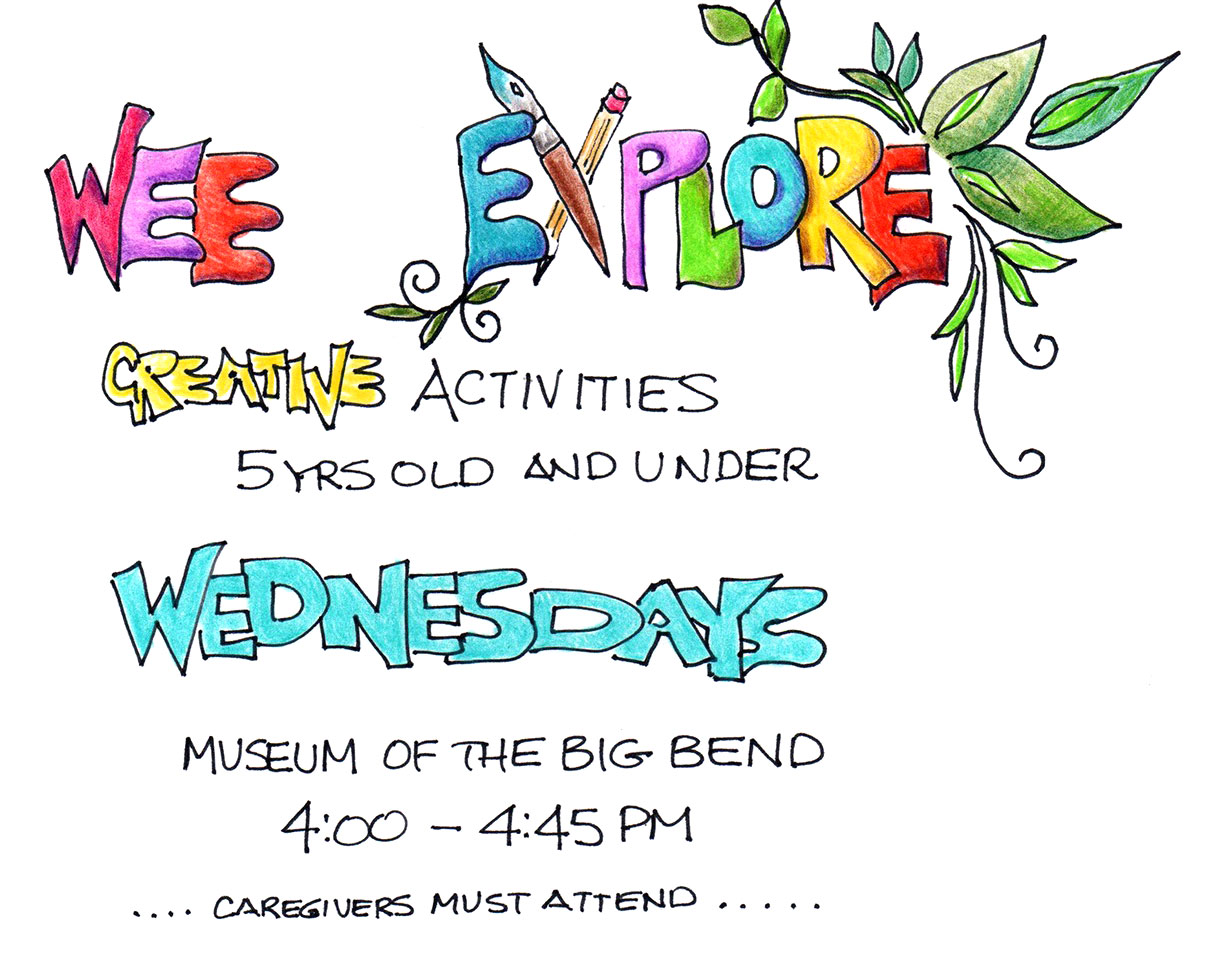 WEE EXPLORE
CREATIVE ACTIVITIES
5 YRS OLD AND UNDER
WEDNESDAYS
MUSEUM OF THE BIG BEND
4:00 - 4:45 PM
.... CAREGIVERS MUST ATTEND .....